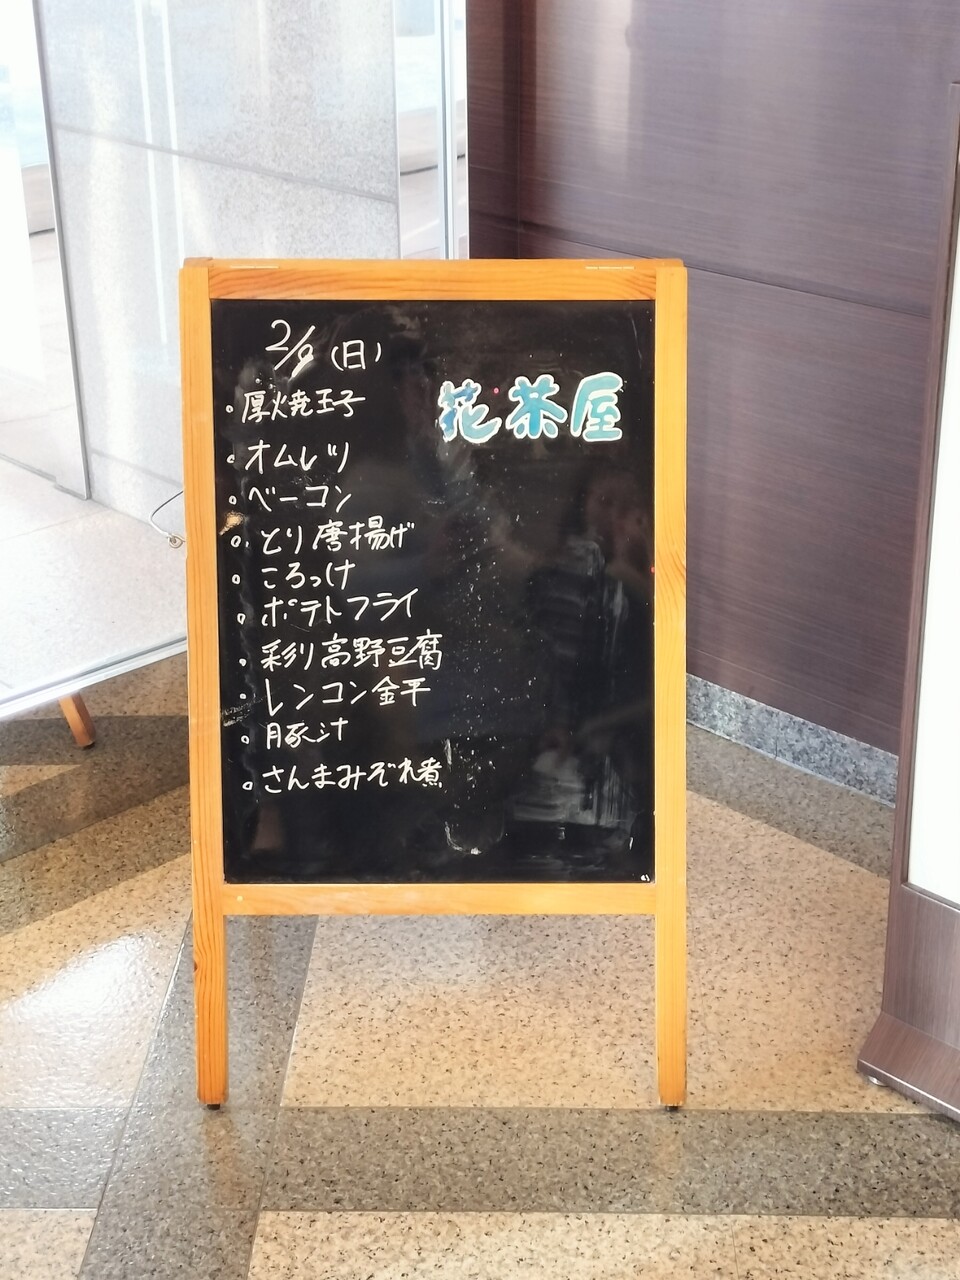 2/9 (日)
花茶屋
。厚焼玉子
。オムレツ
。ベーコン
。とり唐揚げ
。ころっけ
。ポテトフライ
。彩り高野豆腐
。レンコン金平
。豚汁
。さんまみぞれ煮